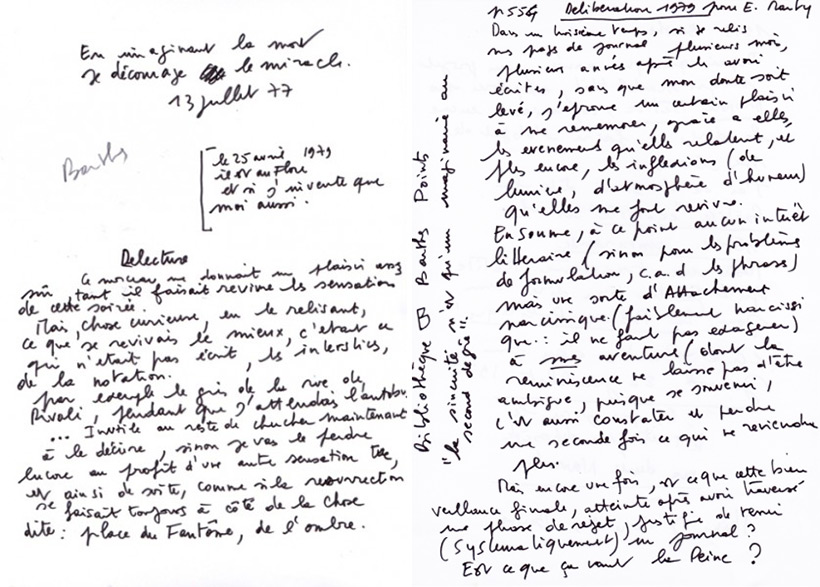 En imaginant la mort
se décourage le miracle.
13 juillet 77
Barthes
le 25 avril 1979
il est au Flore
et si j'invente que
moi aussi.
Délecture
Ce morceau me donnait un plaisir assez
sûr, tant il faisait revivre les sensations
de cette soirée.
Mais, chose curieuse, en le relisant,
ce que je revivais le mieux, c'était ce
qui n'était pas écrit, les interstices,
de la notation.
par exemple le gris de la rive de
Rivoli, pendant que j'attendais l'autobus
... Inutile au reste de chercher maintenant
à le décrire, sinon je vais le perdre
encore au profit d'une autre sensation tue,
et ainsi de suite, comme si la resurrection
se faisait toujours à côté de la chose
dite : place du Fantôme, de l'ombre.
Bibliothèque Barthes Points
"la sincérité n'est qu'un imaginaire au
second degré".
p 554 Deliberation 1979 pour E. Marty
Dans un troisième temps, si je relis
mes pages de journal plusieurs mois,
plusieurs années après les avoir
écrites, sans que mon doute soit
levé, j'éprouve un certain plaisir
à me rememorer, grâce à elles,
les evenements qu'elles relatent, et
plus encore, les inflexions (de
lumière, d'atmosphère d'humeur)
qu'elles me font revivre.
En somme, à ce point aucun intérêt
litteraire (sinon pour les problèmes
de formulation, c.a.d les phrases)
mais une sorte d'Attachement
narcissique (faiblement narcissi
que : il ne faut pas exagerer)
à mes aventure (dont la
reminiscence ne laisse pas d'être
ambigue, puisque se souvenir,
c'est aussi constater et perdre
une seconde fois ce qui ne reviendra
plus.
Mais encore une fois, est ce que cette bien
veillance finale, atteinte après avoir traversé
une phase de rejet, justifie de tenir
(systematiquement) un journal ?
Est ce que ça vaut la Peine ?